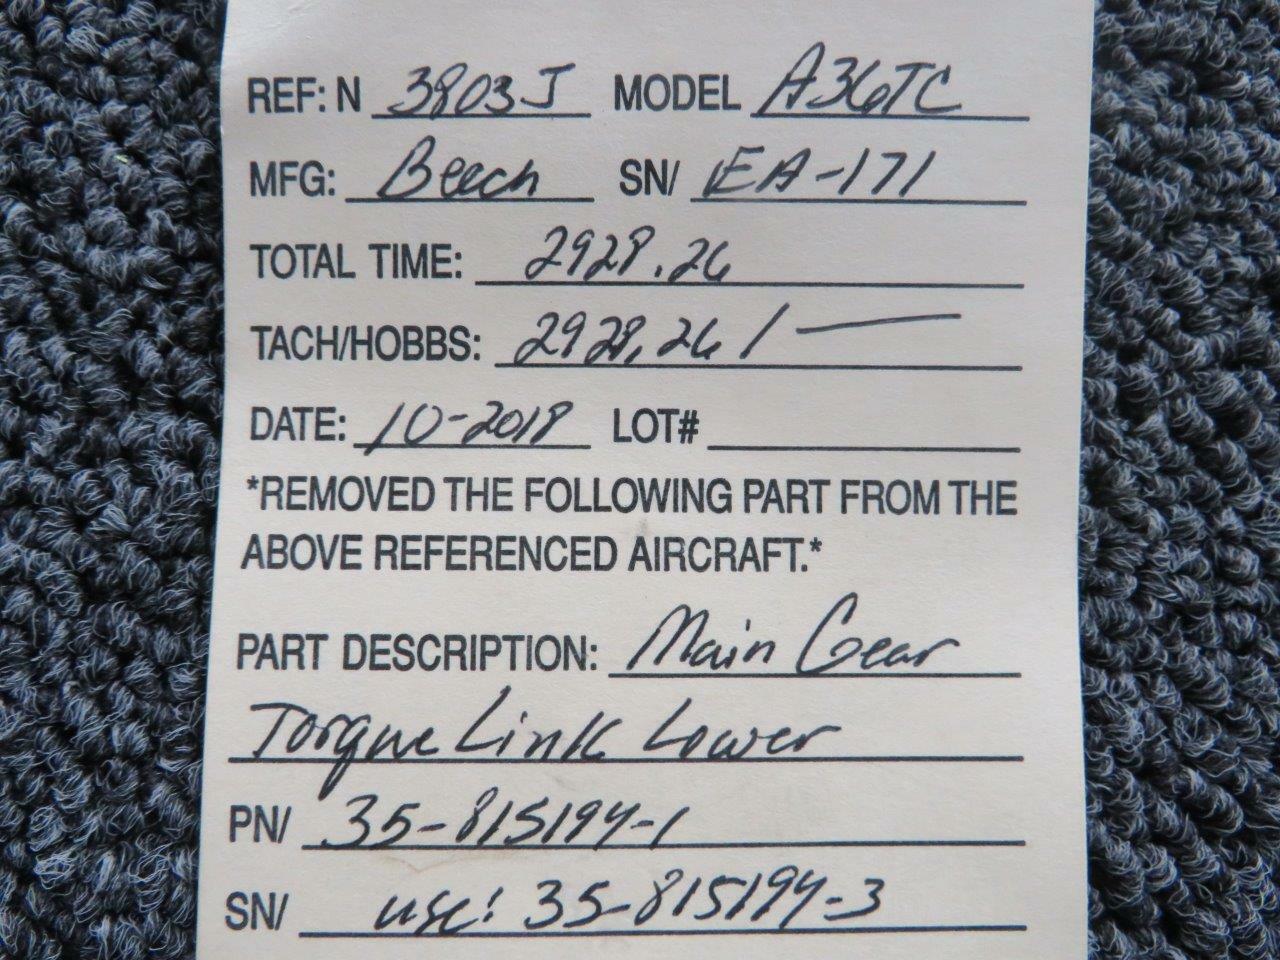 REF: N 3803J MODEL A36TC
MFG: Beech SN/ EA-171
TOTAL TIME: 2928.26
TACH/HOBBS: 2928.26 / —
DATE: 10-2018 LOT#
*REMOVED THE FOLLOWING PART FROM THE
ABOVE REFERENCED AIRCRAFT.*
PART DESCRIPTION: Main Gear
Torque Link Lower
PN/ 35-815194-1
SN/ use: 35-815194-3